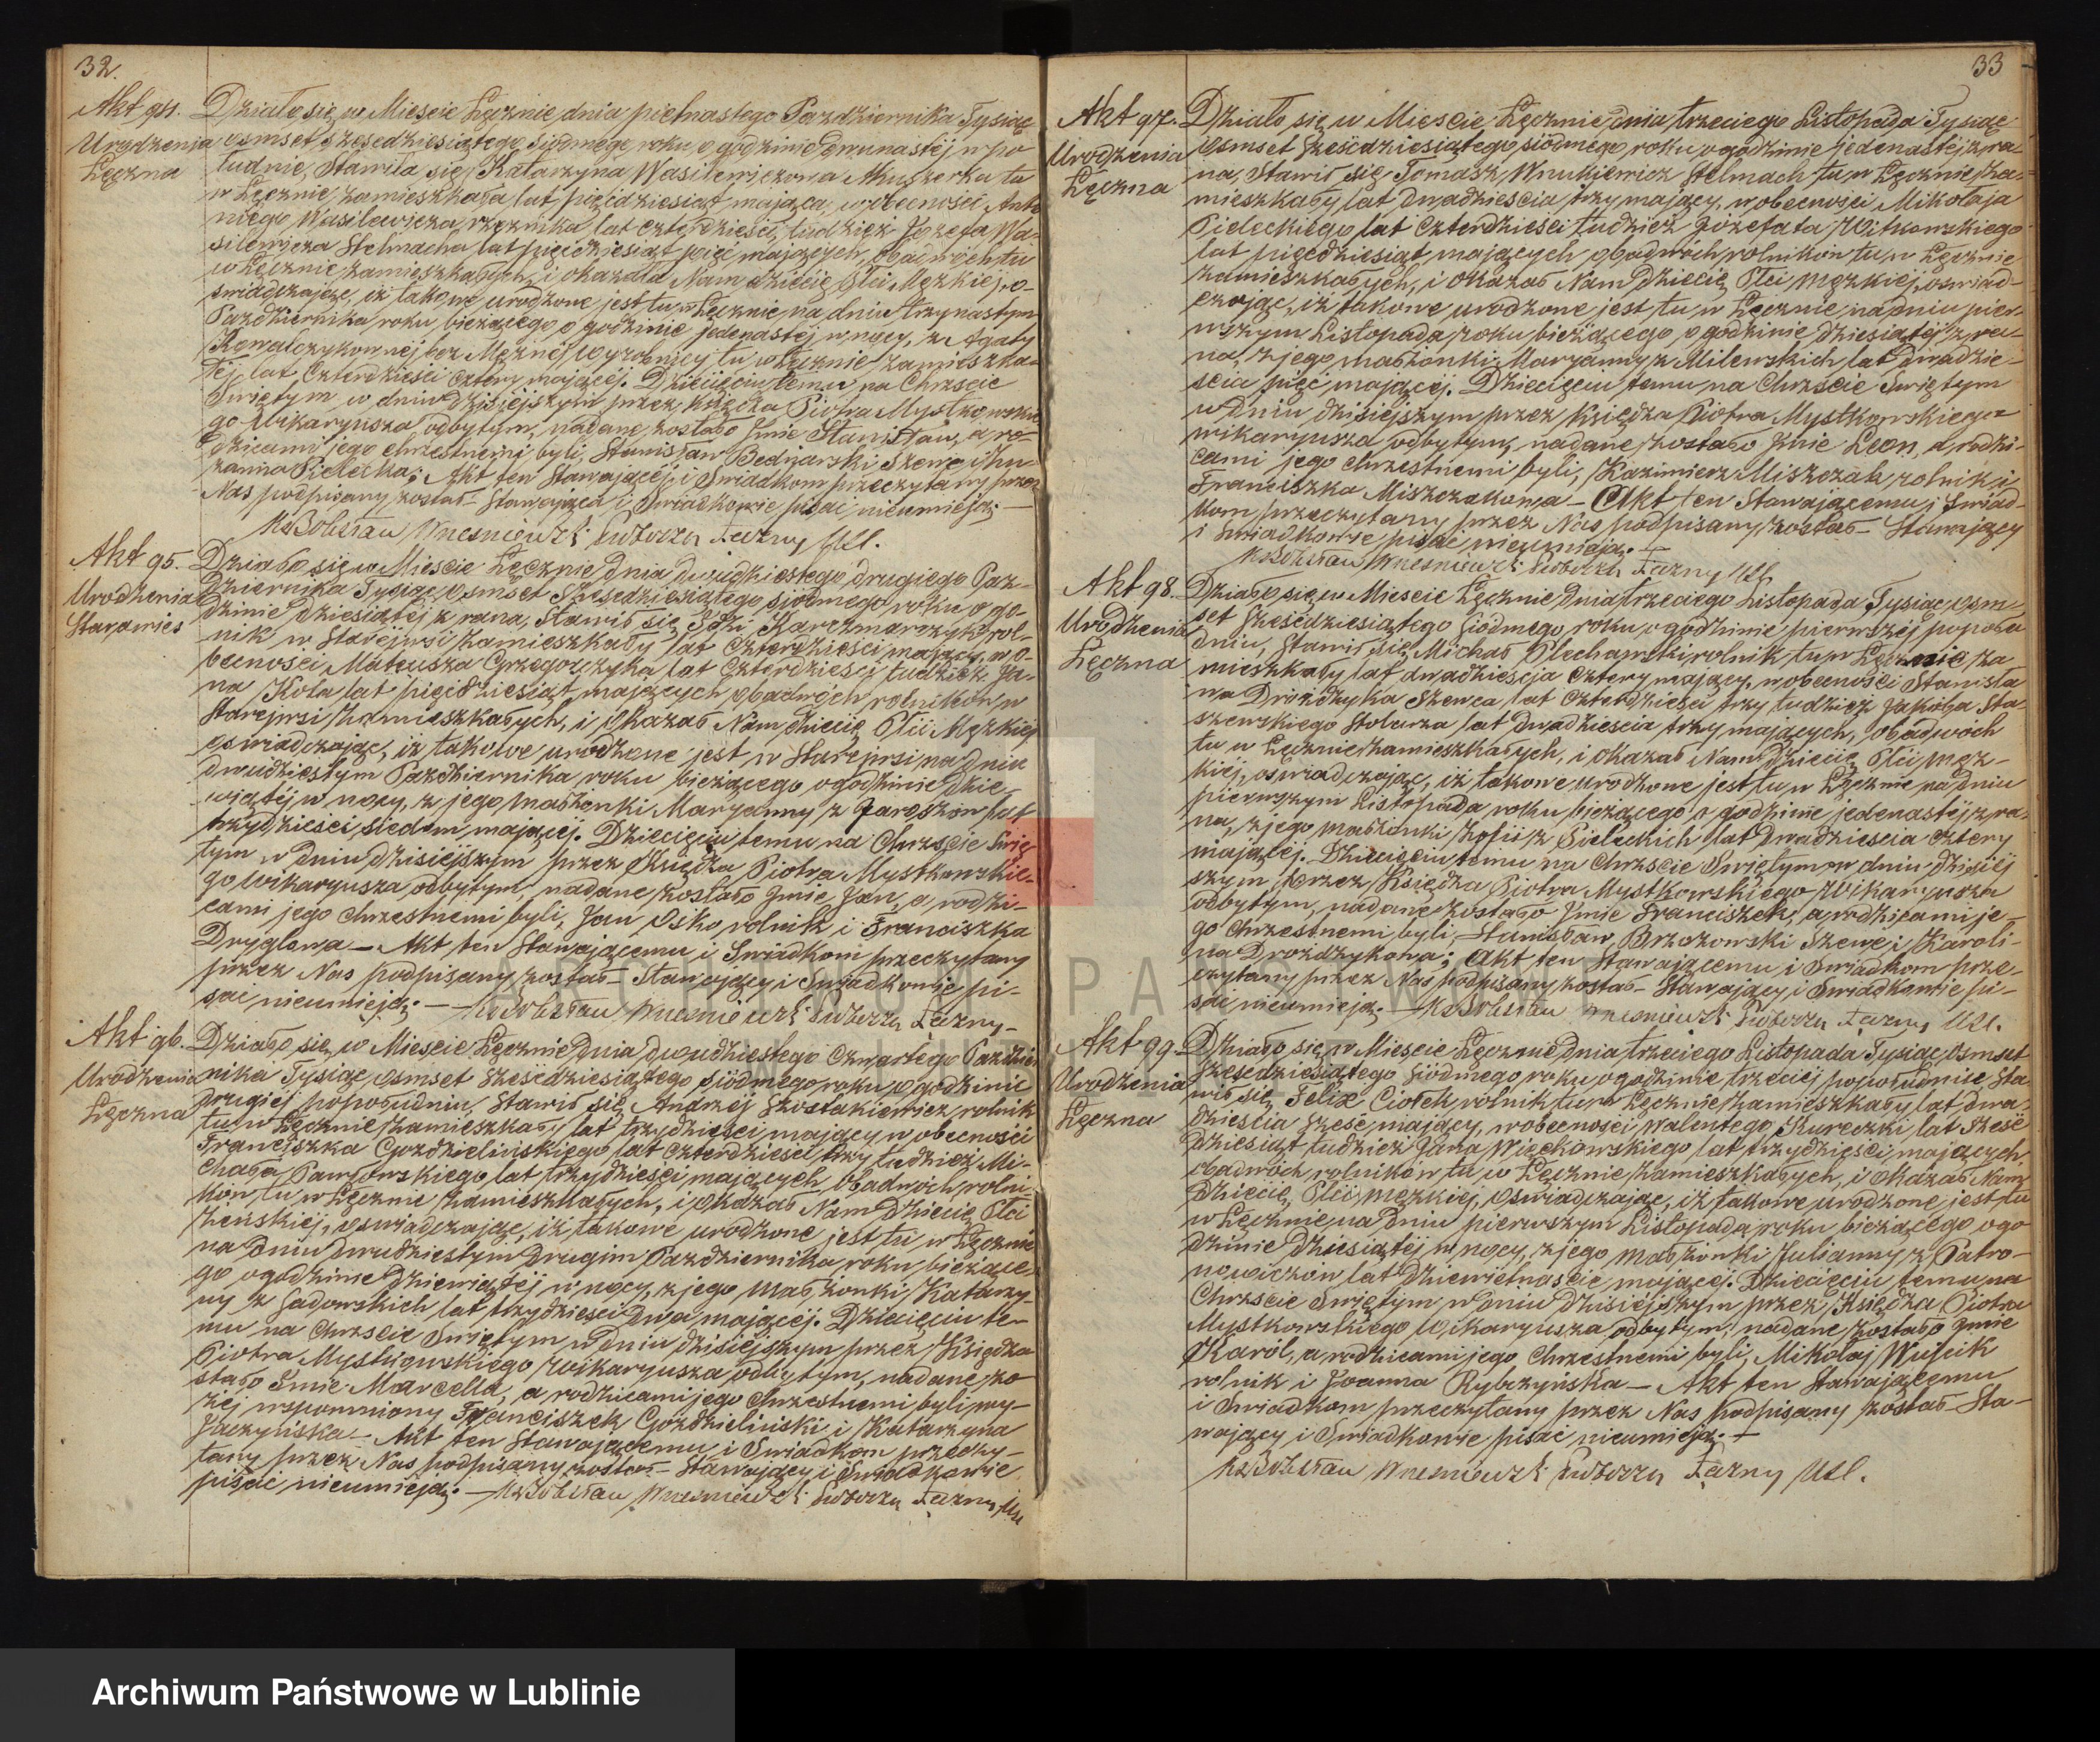 32.
Akt 94.
Urodzenia
Łęczna
Działo się w Mieście Łęcznie dnia pietnastego Pazdziernika Tysiąc
osmset szescdziesiątego siódmego roku o godzinie dwunastéj w po
łudnie, Stawiła się Katarzyna Wasilewiczowa Akuszerka tu
w Łęcznie zamieszkała lat pięćdziesiąt mająca, w obecności Anto
niego Wasilewicza rzeznika lat czterdzieści, tudzież Józefa Wa-
silewicza Stelmacha lat pięćdziesiąt pięć mających, obadwóch tu
w Łęcznie zamieszkałych, i okazała Nam dziécię Płci Męzkiéj, o-
swiadczając, iż takowe urodzone jest tu w Łęcznie na dniu trzynastym
Pazdziernika roku bieżącego o godzinie jedenastéj w nocy, z Agaty
Kowalczykownéj bez Mężnéj wyrobnicy tu w Łęcznie zamieszka-
łéj lat czterdzieści cztery mającéj. Dziécięciu temu na Chrzcie
Świętym w dniu dzisiejszym przez Księdza Piotra Mystkowskie
go Wikaryusza odbytym, nadane zostało Jmie Stanisław, a ro-
dzicami jego chrzestnemi byli, Stanisław Bednarski Szewc i Zu-
zanna Pielecka; Akt ten Stawającéj i Świadkom przeczytany przez
Nas podpisany został - Stawająca i Swiadkowie pisać nieumieją; —
Ks Bolesław Wnesniewski Proboszcz Łęczny USC.
Akt 95.
Urodzenia
Starawies
Działo się w Mieście Łęcznie dnia dwudziestego drugiego Paz-
dziernika Tysiąc osmset szescdziesiątego siódmego roku o go-
dzinie dziesiątéj z rana, Stawił się Jdzi Karczmarczyk rol-
nik w Staréjwsi zamieszkały lat czterdzieści mający, w o-
becności Mateusza Grzegorczyka lat czterdzieści tudzież Ja-
na Kota lat pięćdziesiąt mających obadwóch rolników w
Staréjwsi zamieszkałych, i okazał Nam dziécię Płci Męzkiéj
oswiadczając, iż takowe urodzone jest w Staréjwsi na dniu
dwudziestym Pazdziernika roku bieżącego o godzinie dzie-
wiątéj w nocy, z jego małżonki Maryanny z Jaroszów lat
trzydzieści siedem mającéj. Dziecięciu temu na Chrzcie Swię
tym w dniu dzisiéjszym przez Księdza Piotra Mystkowskie-
go Wikaryusza odbytym nadane zostało Jmie Jan, a rodzi-
cami jego chrzestnemi byli, Jan Ośko rolnik i Franciszka
Dryglowa — Akt ten Stawającemu i Swiadkom przeczytany
przez Nas podpisany został - Stawający i Swiadkowie pi-
sać nieumieją; — Ks Bolesław Wnesniewski Proboszcz Łęczny -
Akt 96.
Urodzenia
Łęczna
Działo się w Mieście Łęcznie dnia dwudziestego czwartego Pazdzier
nika Tysiąc osmset szescdziesiątego siódmego roku o godzinie
drugiéj popołudniu, Stawił się Andrzéj Szostakiewicz rolnik
tu w Łęcznie zamieszkały lat trzydzieści mający w obecności
Franciszka Gozdzielińskiego lat czterdzieści trzy tudzież Mi-
chała Pawłowskiego lat trzydzieści mających, obadwóch rolni-
ków tu w Łęcznie zamieszkałych, i okazał Nam dziécię Płci
Zeńskiéj, oswiadczając, iż takowe urodzone jest tu w Łęcznie
na dniu dwudziestym drugim Pazdziernika roku bieżące-
go o godzinie dziewiątéj w nocy, z jego małżonki Katarzy-
ny z Sadowskich lat trzydzieści dwa mającéj. Dziecięciu te-
mu na Chrzcie Swiętym w dniu dzisiéjszym przez Księdza
Piotra Mystkowskiego Wikaryusza odbytym, nadane zo-
stało Jmie Marcella, a rodzicami jego chrzestnemi byli wy-
żéj wspomniony Franciszek Gozdzieliński i Katarzyna
Jaczyńska — Akt ten Stawającemu i Swiadkom przeczy-
tany przez Nas podpisany został - Stawający i Swiadkowie
pisać nieumieją; — Ks Bolesław Wnesniewski Proboszcz Łęczny USC
33
Akt 97.
Urodzenia
Łęczna
Działo się w Mieście Łęcznie, dnia trzeciego Listopada Tysiąc
osmset sześćdziesiątego siódmego roku o godzinie jedenastéj z ra-
na, Stawił się Tomasz Wnukiewicz Stelmach tu w Łęcznie za-
mieszkały lat dwadzieścia trzy mający, w obecności Mikołaja
Pieleckiego lat czterdzieści tudzież Józefata Witkowskiego
lat pięćdziesiąt mających obadwóch rolników tu w Łęcznie
zamieszkałych, i okazał Nam dziécię Płci męzkiéj, oswiad-
czając, iż takowe urodzone jest tu w Łęcznie na dniu pier-
wszym Listopada roku bieżącego o godzinie dziesiątéj z ra-
na, z jego małżonki Maryanny z Milewskich lat dwadzie-
ścia pięć mającéj. Dziecięciu temu na Chrzcie Swiętym
w dniu dzisiéjszym przez Księdza Piotra Mystkowskiego
wikaryusza odbytym, nadane zostało Jmie Leon, a rodzi-
cami jego chrzestnemi byli, Kazimierz Miszczak rolnik i
Franciszka Miszczakowa — Akt ten Stawającemu i Swiad-
kom przeczytany przez Nas podpisany został - Stawający
i Swiadkowie pisać nieumieją. —
Ks Bolesław Wnesniewski Proboszcz Łęczny USC
Akt 98.
Urodzenia
Łęczna
Działo się w Mieście Łęcznie dnia trzeciego Listopada Tysiąc osm-
set sześćdziesiątego siódmego roku o godzinie pierwszéj popołu
dniu, Stawił się Michał Plechawski rolnik tu w Łęcznie za
mieszkały lat dwadzieścia cztery mający, w obecności Stanisła
wa Drożdżyka Szewca lat czterdzieści trzy tudzież Jakóba Sta-
szewskiego Stolarza lat dwadzieścia trzy mających, obadwóch
tu w Łęcznie zamieszkałych, i okazał Nam dziécię Płci męz-
kiéj, oswiadczając, iż takowe urodzone jest tu w Łęcznie na dniu
pierwszym Listopada roku bieżącego o godzinie jedenastéj z ra-
na, z jego małżonki Zofii z Pieleckich lat dwadzieścia cztery
mającéj. Dziecięciu temu na Chrzcie Swiętym w dniu dzisiéj
szym przez Księdza Piotra Mystkowskiego Wikaryusza
odbytym, nadane zostało Jmie Franciszek, a rodzicami je-
go chrzestnemi byli, Stanisław Brzozowski Szewc i Karoli-
na Drożdżykowa; Akt ten Stawającemu i Swiadkom prze-
czytany przez Nas podpisany został - Stawający i Swiadkowie pi-
sać nieumieją; — Ks Bolesław Wnesniewski Proboszcz Łęczny USC.
Akt 99.
Urodzenia
Łęczna
Działo się w Mieście Łęcznie dnia trzeciego Listopada Tysiąc osmset
szescdziesiątego siódmego roku o godzinie trzeciéj popołudniu, Sta
wił się Felix Ciołek rolnik tu w Łęcznie zamieszkały lat dwa-
dzieścia sześć mający, w obecności Walentego Kureczki lat sześć
dziesiąt tudzież Jana Więckowskiego lat trzydzieści mających,
obadwóch rolników tu w Łęcznie zamieszkałych, i okazał Nam
dziécię Płci męzkiéj, oswiadczając, iż takowe urodzone jest tu
w Łęcznie na dniu pierwszym Listopada roku bieżącego o go
dzinie dziesiątéj w nocy, z jego małżonki Julianny z Patro-
nowiczów lat dziewiętnaście mającéj. Dziecięciu temu na
Chrzcie Swiętym w dniu dzisiéjszym przez Księdza Piotra
Mystkowskiego Wikaryusza odbytym, nadane zostało Jmie
Karól, a rodzicami jego chrzestnemi byli, Mikołaj Wujcik
rolnik i Joanna Rybczyńska — Akt ten Stawającemu
i Swiadkom przeczytany przez Nas podpisany został - Sta-
wający i Swiadkowie pisać nieumieją; —
Ks Bolesław Wnesniewski Proboszcz Łęczny USC.
Archiwum Państwowe w Lublinie